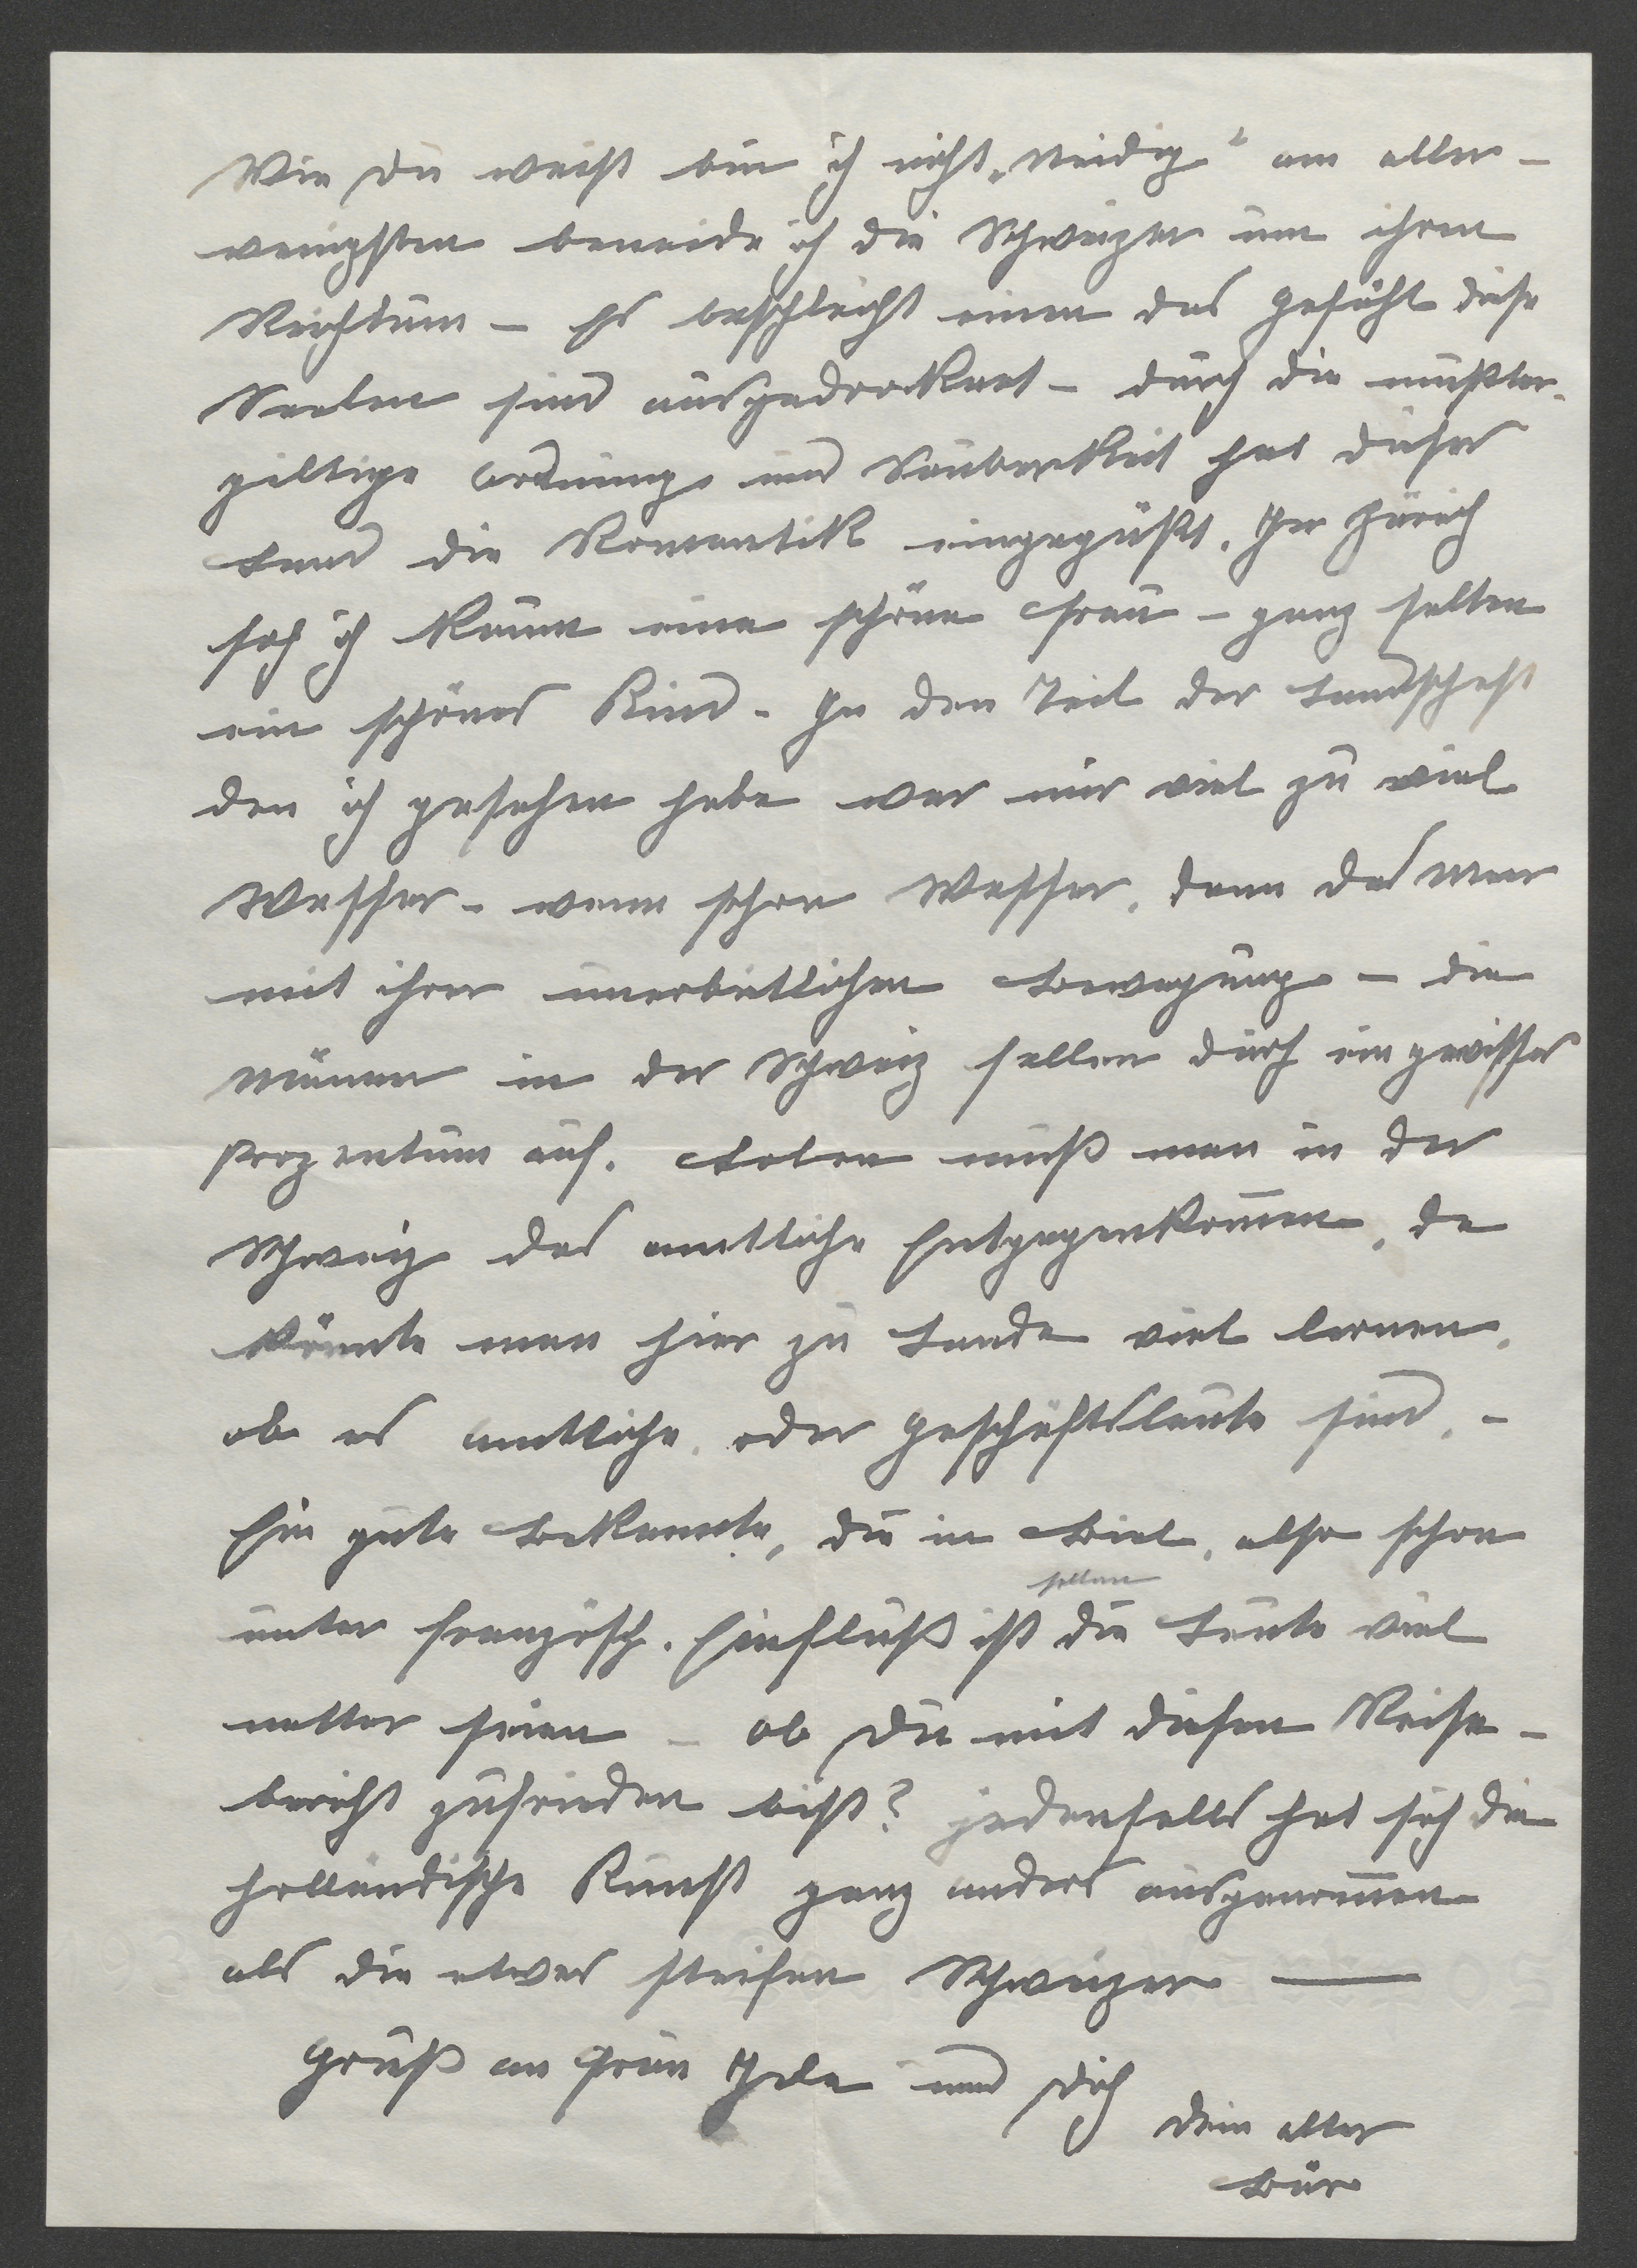 Wie Du weißt bin ich nicht „neidig“ am aller-
wenigsten beneide ich die Schweizer um ihren
Reichtum – Es beschleicht einen das Gefühl diese
Seelen sind ausgedrocknet – durch die mußter-
giltige Ordnung und Sauberkeit hat dieses
Land die Romantik eingepüßt. In Zürich
sah ich kaum eine schöne Frau – ganz selten
ein schönes Kind. In den Teil der Landschaft
den ich gesehen habe war mir viel zu viel
Wasser – wenn schon Wasser, dann das Meer
mit ihrer unerbittlichen Bewegung – die
Männer in der Schweiz fallen durch ein gewisses
Prozentum auf. Loben muß man in der
Schweiz das amtliche Entgegenkommen, da
könnte man hier zu Lande viel lernen,
ob es amtliche, oder Geschäftsleute sind, –
Ein gute Bekannte, die in Biel, also schon
sollen
unter französch. Einfluß ist die Leute viel
netter seien – ob Du mit diesen Reise-
bericht zufrieden bist? jedenfalls hat sich die
holländische Kunst ganz anders ausgenommen
als die etwas steifen Schweizer —
Gruß an Frau Ida und Dich
Dein alter
Bär